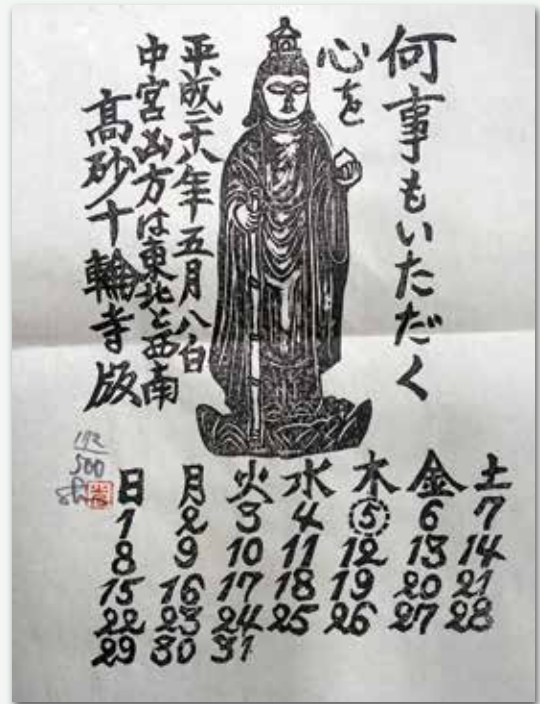 何事もいただく
心を
平成二十八年五月八白
中宮凶方は東北と西南
高砂十輪寺版
172
500
日 月 火 水 木 金 土
1 2 3 4 5 6 7
8 9 10 11 12 13 14
15 16 17 18 19 20 21
22 23 24 25 26 27 28
29 30 31